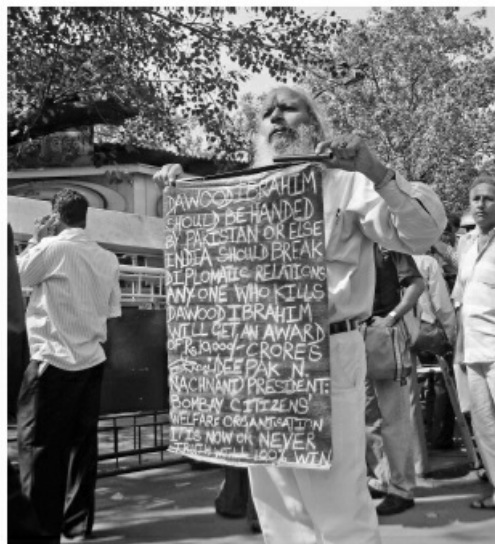 DAWOOD IBRAHIM
SHOULD BE HANDED
BY PAKISTAN OR ELSE
INDIA SHOULD BREAK
DIPLOMATIC RELATIONS
ANY ONE WHO KILLS
DAWOOD IBRAHIM
WILL GET AN AWARD
OF Rs 10,000/- CRORES
FROM DEEPAK N.
NACHNANI PRESIDENT:
BOMBAY CITIZENS'
WELFARE ORGANISATION
IT IS NOW OR NEVER
TRUTH WILL 100% WIN